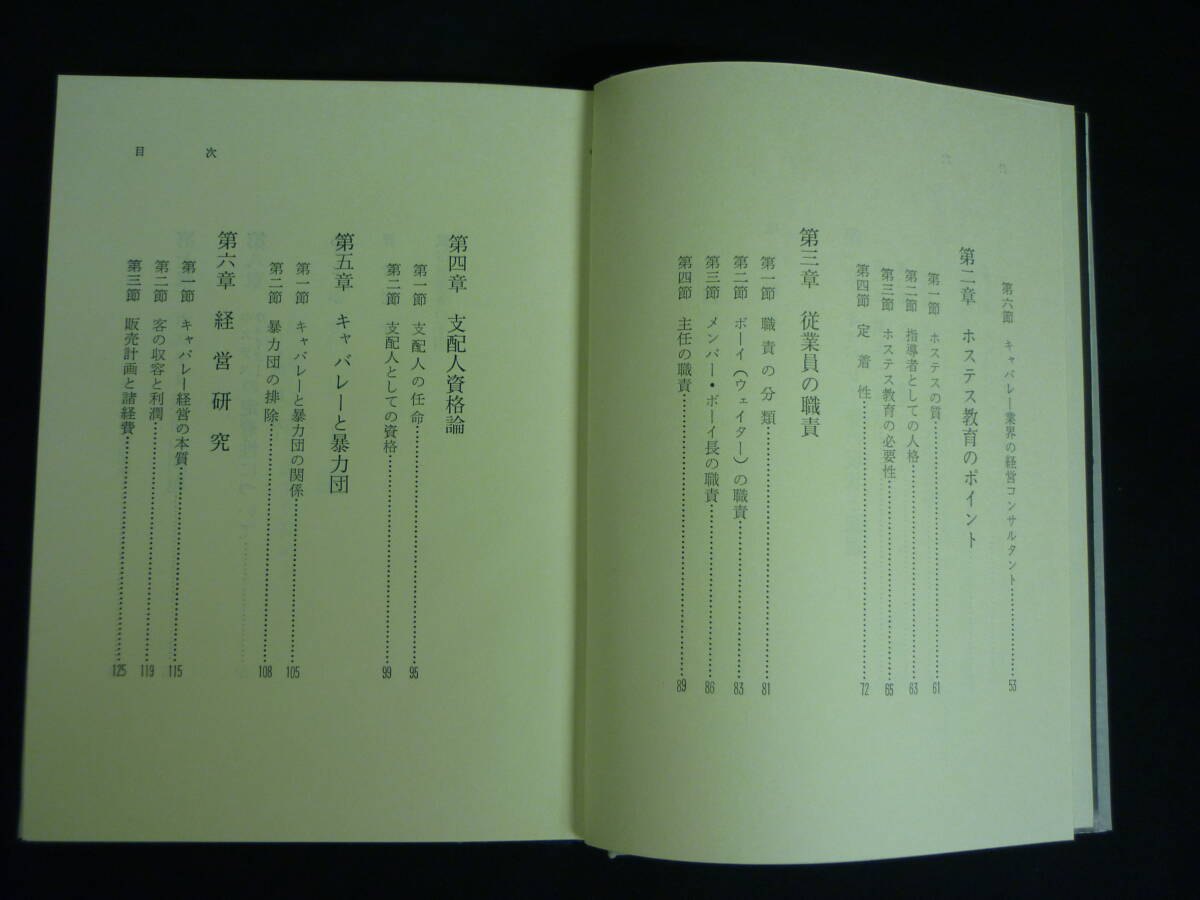 第六節　キャバレー業界の経営コンサルタント……………53
第二章　ホステス教育のポイント
第一節　ホステスの質……………61
第二節　指導者としての人格……………63
第三節　ホステス教育の必要性……………65
第四節　定着性……………72
第三章　従業員の職責
第一節　職責の分類……………81
第二節　ボーイ（ウェイター）の職責……………83
第三節　メンバー・ボーイ長の職責……………86
第四節　主任の職責……………89
目次
第四章　支配人資格論
第一節　支配人の任命……………95
第二節　支配人としての資格……………99
第五章　キャバレーと暴力団
第一節　キャバレーと暴力団の関係……………105
第二節　暴力団の排除……………108
第六章　経営研究
第一節　キャバレー経営の本質……………115
第二節　客の収容と利潤……………119
第三節　販売計画と諸経費……………125